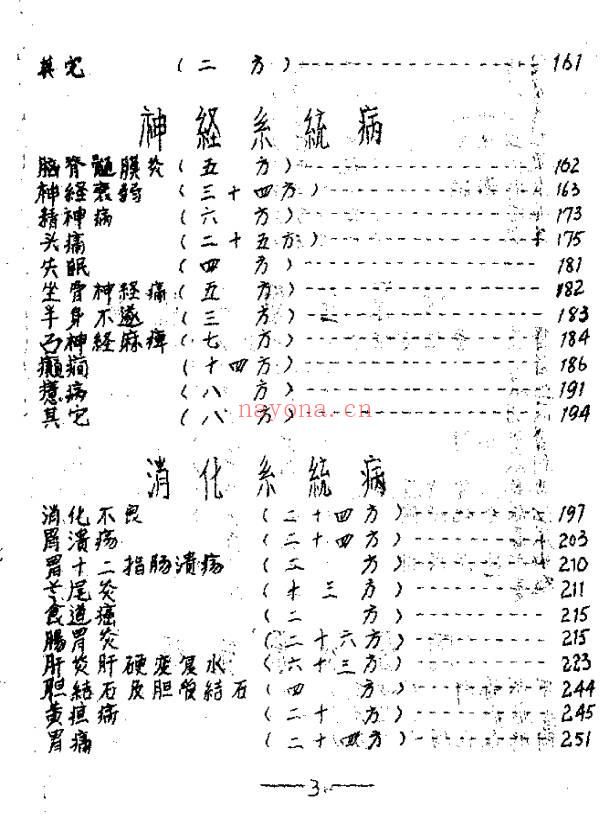 其它 (二方) 161
神経系統病
脳脊髓膜炎 (五方) 162
神経衰弱 (三十四方) 163
精神病 (六方) 173
头痛 (二十五方) 175
失眠 (四方) 181
坐骨神経痛 (五方) 182
半身不遂 (三方) 183
神経麻痺 (七方) 184
癲癇 (十四方) 186
病 (八方) 191
其它 (八方) 194
nayona.cn
消化系統病
消化不良 (二十四方) 197
胃潰疡 (二十四方) 203
胃十二指肠潰疡 (二方) 210
尾炎 (十三方) 211
食道癌 (二方) 215
腸胃炎 (二十六方) 215
肝炎肝硬变腹水 (六十三方) 223
胆結石及胆管結石 (四方) 244
黄疸病 (二十方) 245
胃痛 (二十四方) 251
3